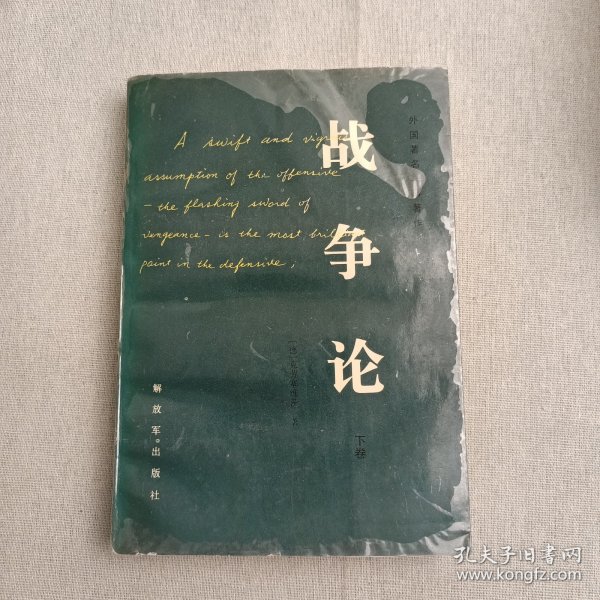 外国著名
著作
A swift and vigr
assumption of the offensive
- the flashing sword of
vengeance - is the most bril
point in the defensive;
战争论
下卷
著
解放军出版社
孔夫子旧书网
www.kongfz.com